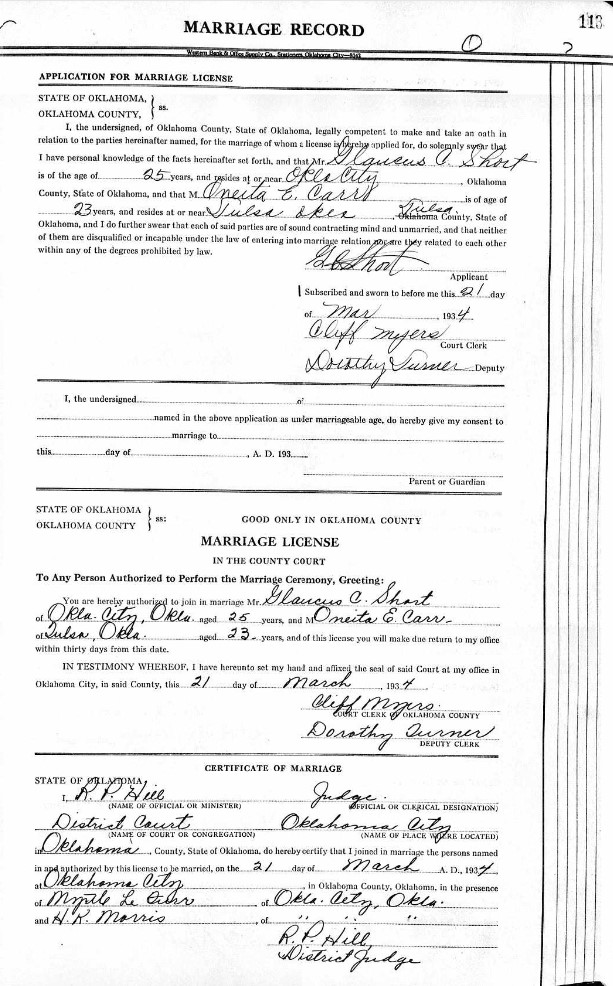 MARRIAGE RECORD
113
Western Bank & Office Supply Co., Stationers, Oklahoma City
APPLICATION FOR MARRIAGE LICENSE
STATE OF OKLAHOMA,
OKLAHOMA COUNTY, } ss.
I, the undersigned, of Oklahoma County, State of Oklahoma, legally competent to make and take an oath in
relation to the parties hereinafter named, for the marriage of whom a license is hereby applied for, do solemnly swear that
I have personal knowledge of the facts hereinafter set forth, and that Mr. Glaucus C. Short
is of the age of 25 years, and resides at or near Okla City, Oklahoma
County, State of Oklahoma, and that M Oneita E. Carr is of age of
23 years, and resides at or near Tulsa Okla, Tulsa Oklahoma County, State of
Oklahoma, and I do further swear that each of said parties are of sound contracting mind and unmarried, and that neither
of them are disqualified or incapable under the law of entering into marriage relation nor are they related to each other
within any of the degrees prohibited by law.
G C Short
Applicant
Subscribed and sworn to before me this 21 day
of Mar, 1934
Cliff Myers
Court Clerk
Dorothy Turner Deputy
I, the undersigned of
named in the above application as under marriageable age, do hereby give my consent to
marriage to
this day of, A. D. 193
Parent or Guardian
STATE OF OKLAHOMA
OKLAHOMA COUNTY } ss: GOOD ONLY IN OKLAHOMA COUNTY
MARRIAGE LICENSE
IN THE COUNTY COURT
To Any Person Authorized to Perform the Marriage Ceremony, Greeting:
You are hereby authorized to join in marriage Mr. Glaucus C. Short
of Okla. City, Okla. aged 25 years, and M Oneita E. Carr
of Tulsa, Okla. aged 23 years, and of this license you will make due return to my office
within thirty days from this date.
IN TESTIMONY WHEREOF, I have hereunto set my hand and affixed the seal of said Court at my office in
Oklahoma City, in said County, this 21 day of March, 1934
Cliff Myers
COURT CLERK OF OKLAHOMA COUNTY
Dorothy Turner
DEPUTY CLERK
CERTIFICATE OF MARRIAGE
STATE OF OKLAHOMA,
I, R. P. Hill Judge
(NAME OF OFFICIAL OR MINISTER) OFFICIAL OR CLERICAL DESIGNATION)
District Court Oklahoma City
(NAME OF COURT OR CONGREGATION) (NAME OF PLACE WHERE LOCATED)
in Oklahoma, County, State of Oklahoma, do hereby certify that I joined in marriage the persons named
in and authorized by this license to be married, on the 21 day of March A. D., 1934
at Oklahoma City, in Oklahoma County, Oklahoma, in the presence
of Myrtle Le of Okla. City, Okla.
and H. K. Morris, of " " "
R. P. Hill
District Judge